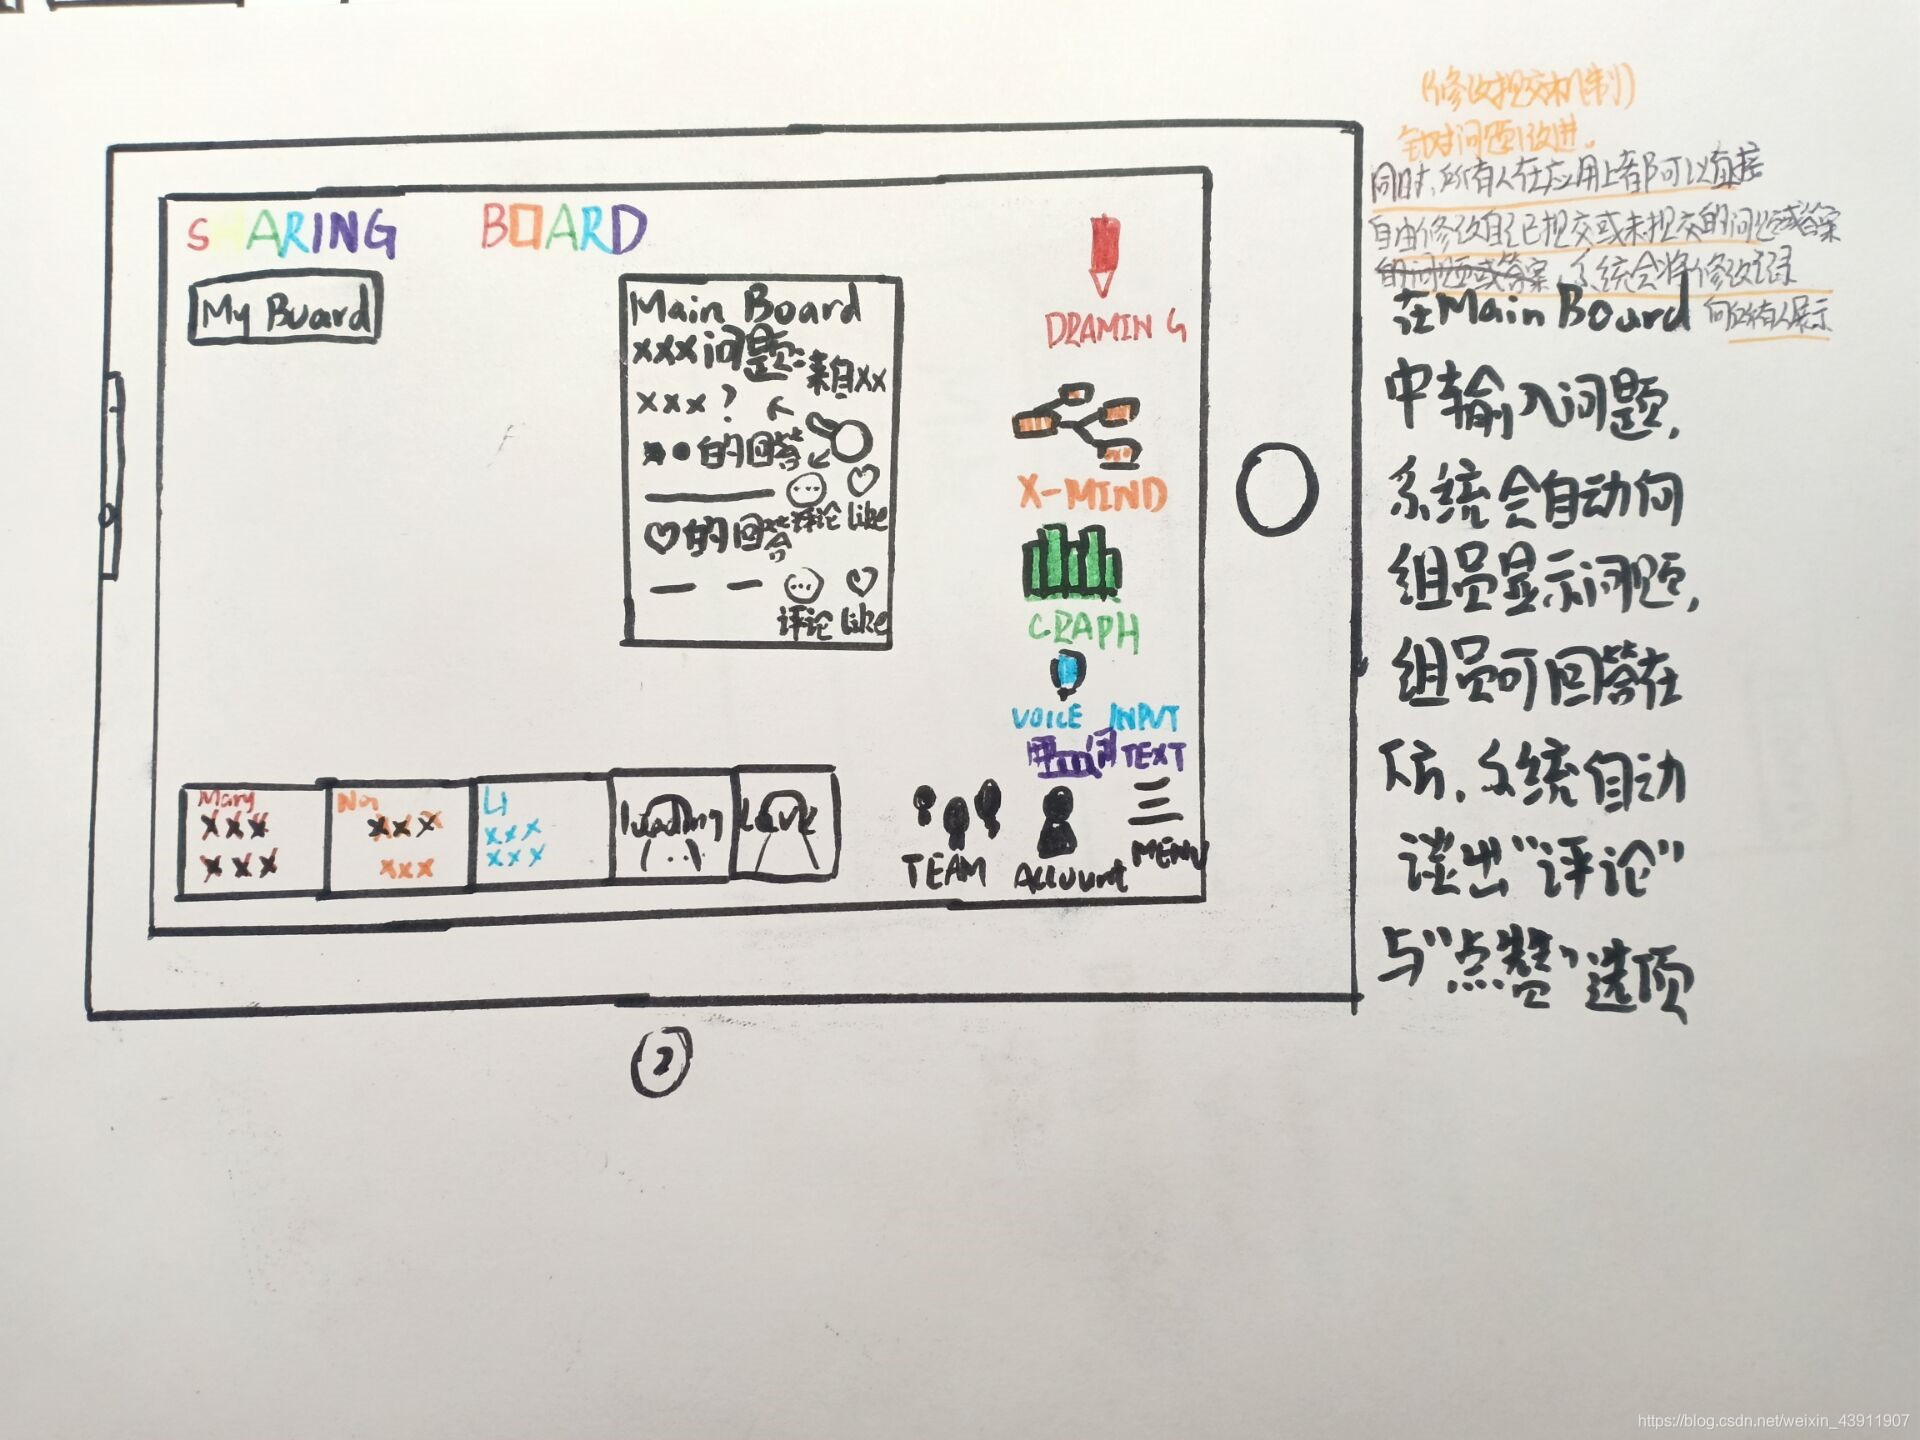 SHARING BOARD
My Board
Main Board
xxx问题:来自xx
xxx?
的回答
评论 like
♡的回答
评论 like
DRAMING
X-MIND
GRAPH
VOICE INPUT
TEXT
Mary
xxx
xxx
xxx
xxx
LI
xxx
xxx
loading
TEAM
Account
MENU
(修改提交机制)
针对问题1改进.
同时,所有人在应用上都可以直接
自由修改自己已提交或未提交的问题或答案
的问题或答案,系统会将修改记录
向所有人展示
在Main Board
中输入问题,
系统会自动向
组员显示问题,
组员可回答在
下方,系统自动
谈出“评论”
与“点赞”选项
2
https://blog.csdn.net/weixin_43911907